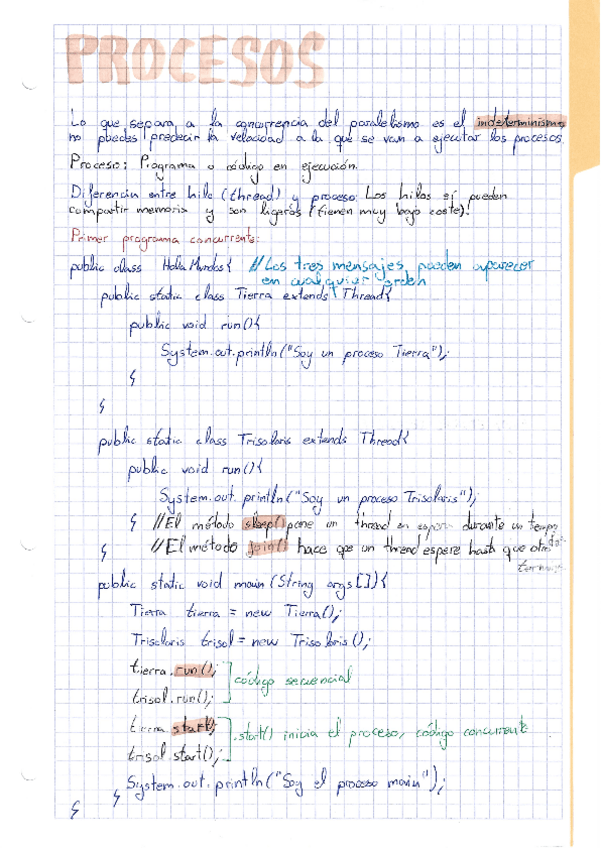 PROCESOS
Lo que separa a la concurrencia del paralelismo es el indeterminismo,
no puedes predecir la velocidad a la que se van a ejecutar los procesos.
Proceso: Programa o código en ejecución.
Diferencia entre hilo (thread) y proceso: Los hilos sí pueden
compartir memoria y son ligeros (tienen muy bajo coste).
Primer programa concurrente:
public class Hola Mundos{ //Los tres mensajes pueden aparecer
en cualquier orden
public static class Tierra extends Thread{
public void run(){
System.out.println("Soy un proceso Tierra");
}
}
public static class Trisolaris extends Thread{
public void run(){
System.out.println("Soy un proceso Trisolaris");
} //El método sleep() pone un thread en espera durante un tiempo
} //El método join() hace que un thread espere hasta que otro
public static void main (String args[]){
Tierra tierra = new Tierra();
Trisolaris trisol = new Trisolaris();
tierra.run();
código secuencial
trisol.run();
tierra.start();
.start() inicia el proceso, código concurrente
trisol.start();
System.out.println("Soy el proceso main");
}
}